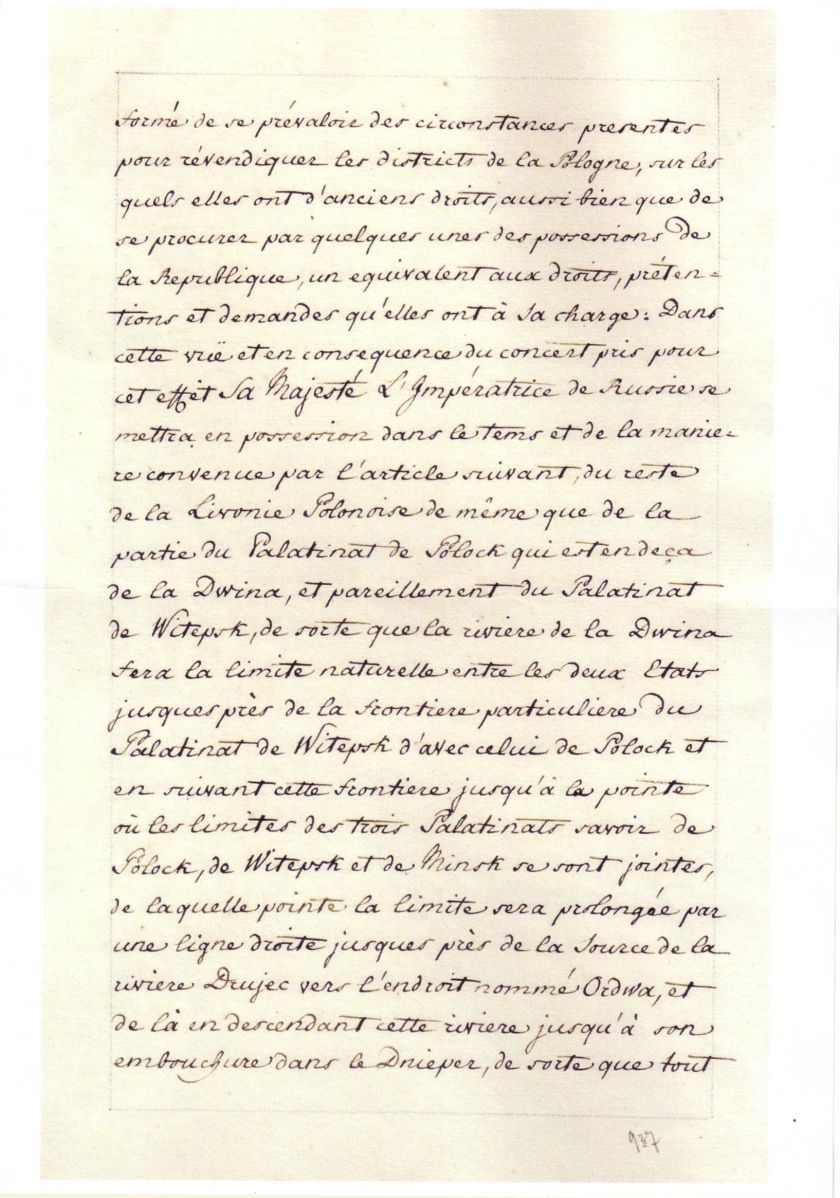 formé de se prévaloir des circonstances presentes
pour révendiquer les districts de la Pologne, sur les
quels elles ont d'anciens droits, aussi bien que de
se procurer par quelques unes des possessions de
la Republique, un equivalent aux droits, préten=
tions et demandes qu'elles ont à Sa charge: Dans
cette vüe et en consequence du concert pris pour
cet effêt Sa Majesté L'Impératrice de Russie se
mettra en possession dans le tems et de la manie=
re convenue par l'article suivant, du reste
de la Livonie Polonoise de même que de la
partie du Palatinat de Polock qui est en deça
de la Dwina, et pareillement du Palatinat
de Witepsk, de sorte que la riviere de la Dwina
fera la limite naturelle entre les deux Etats
jusques près de la frontiere particuliere du
Palatinat de Witepsk d'avec celui de Polock et
en suivant cette frontiere jusqu'à la pointe
où les limites des trois Palatinats savoir de
Polock, de Witepsk et de Minsk se sont jointes,
de laquelle pointe la limite sera prolongée par
une ligne droite jusques près de la Source de la
riviere Drujec vers l'endroit nommé Ordwa, et
de là en descendant cette riviere jusqu'à son
embouchure dans le Dnieper, de sorte que tout
937